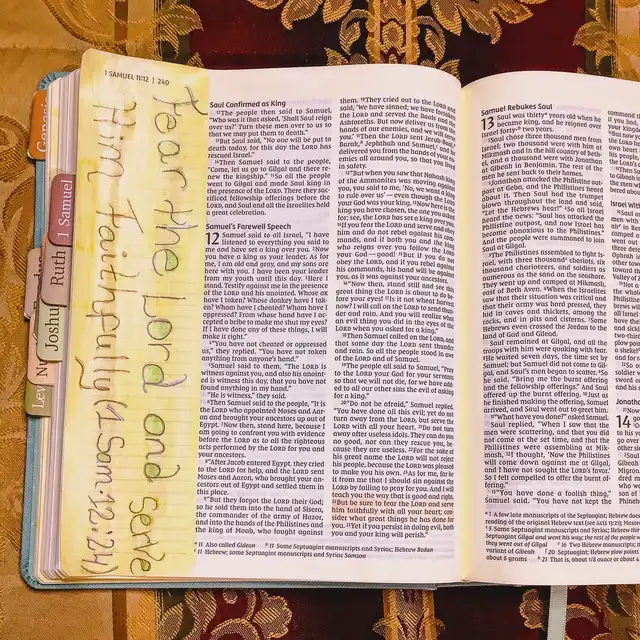 1 SAMUEL 11:12 | 240
fear the Lord and serve
Him faithfully (1 Sam: 12:24)
Genesi
1 Samuel
Ruth
Joshu
Nu
Lev
Saul Confirmed as King
12The people then said to Samuel,
"Who was it that asked, 'Shall Saul reign
over us?' Turn these men over to us so
that we may put them to death."
13But Saul said, "No one will be put to
death today, for this day the LORD has
rescued Israel."
14Then Samuel said to the people,
"Come, let us go to Gilgal and there re-
new the kingship." 15So all the people
went to Gilgal and made Saul king
in the presence of the LORD. There they sac-
rificed fellowship offerings before the
LORD, and Saul and all the Israelites held
a great celebration.
Samuel's Farewell Speech
12 Samuel said to all Israel, "I have
listened to everything you said to
me and have set a king over you. 2Now
you have a king as your leader. As for
me, I am old and gray, and my sons are
here with you. I have been your leader
from my youth until this day. 3Here I
stand. Testify against me in the presence
of the LORD and his anointed. Whose ox
have I taken? Whose donkey have I tak-
en? Whom have I cheated? Whom have I
oppressed? From whose hand have I ac-
cepted a bribe to make me shut my eyes?
If I have done any of these things, I will
make it right."
4"You have not cheated or oppressed
us," they replied. "You have not taken
anything from anyone's hand."
5Samuel said to them, "The LORD is
witness against you, and also his anoint-
ed is witness this day, that you have not
found anything in my hand."
"He is witness," they said.
6Then Samuel said to the people, "It is the
LORD who appointed Moses and Aar-
on and brought your ancestors up out of
Egypt. 7Now then, stand here, because I
am going to confront you with evidence
before the LORD as to all the righteous
acts performed by the LORD for you and
your ancestors.
8"After Jacob entered Egypt, they cried
to the LORD for help, and the LORD sent
Moses and Aaron, who brought your an-
cestors out of Egypt and settled them in
this place.
9"But they forgot the LORD their God;
so he sold them into the hand of Sisera,
the commander of the army of Hazor,
and into the hands of the Philistines and
the king of Moab, who fought against
them. 10They cried out to the LORD and
said, 'We have sinned; we have forsaken
the LORD and served the Baals and the
Ashtoreths. But now deliver us from the
hands of our enemies, and we will serve
you.' 11Then the LORD sent Jerub-Baal,
Barak, Jephthah and Samuel, and he
delivered you from the hands of your en-
emies all around you, so that you lived
in safety.
12"But when you saw that Nahash king
of the Ammonites was moving against
you, you said to me, 'No, we want a king
to rule over us'—even though the LORD
your God was your king. 13Now here is the
king you have chosen, the one you asked
for; see, the LORD has set a king over you.
14If you fear the LORD and serve and obey
him and do not rebel against his com-
mands, and if both you and the king
who reigns over you follow the LORD
your God—good! 15But if you do not
obey the LORD, and if you rebel against
his commands, his hand will be against
you, as it was against your ancestors.
16"Now then, stand still and see this
great thing the LORD is about to do be-
fore your eyes! 17Is it not wheat harvest
now? I will call on the LORD to send thun-
der and rain. And you will realize what
an evil thing you did in the eyes of the
LORD when you asked for a king."
18Then Samuel called on the LORD, and
that same day the LORD sent thunder
and rain. So all the people stood in awe
of the LORD and of Samuel.
19The people all said to Samuel, "Pray
to the LORD your God for your servants
so that we will not die, for we have add-
ed to all our other sins the evil of asking
for a king."
20"Do not be afraid," Samuel replied.
"You have done all this evil; yet do not
turn away from the LORD, but serve the
LORD with all your heart. 21Do not turn
away after useless idols. They can do you
no good, nor can they rescue you, be-
cause they are useless. 22For the sake of
his great name the LORD will not reject
his people, because the LORD was pleased
to make you his own. 23As for me, far be
it from me that I should sin against the
LORD by failing to pray for you. And I will
teach you the way that is good and right.
24But be sure to fear the LORD and serve
him faithfully with all your heart; con-
sider what great things he has done for
you. 25Yet if you persist in doing evil, both
you and your king will perish."
11 Also called Gideon 11 Some Septuagint manuscripts and Syriac; Hebrew Bedan
11 Hebrew; some Septuagint manuscripts and Syriac Samson
Samuel Rebukes Saul
13 Saul was thirty years old when he
became king, and he reigned over
Israel forty- two years.
2Saul chose three thousand men from
Israel; two thousand were with him at
Mikmash and in the hill country of Beth-
el, and a thousand were with Jonathan
at Gibeah in Benjamin. The rest of the
men he sent back to their homes.
3Jonathan attacked the Philistine out-
post at Geba, and the Philistines heard
about it. Then Saul had the trumpet
blown throughout the land and said,
"Let the Hebrews hear!" 4So all Israel
heard the news: "Saul has attacked the
Philistine outpost, and now Israel has
become obnoxious to the Philistines."
And the people were summoned to join
Saul at Gilgal.
5The Philistines assembled to fight Is-
rael, with three thousand chariots, six
thousand charioteers, and soldiers as
numerous as the sand on the seashore.
They went up and camped at Mikmash,
east of Beth Aven. 6When the Israelites
saw that their situation was critical and
that their army was hard pressed, they
hid in caves and thickets, among the
rocks, and in pits and cisterns. 7Some
Hebrews even crossed the Jordan to the
land of Gad and Gilead.
Saul remained at Gilgal, and all the
troops with him were quaking with fear.
8He waited seven days, the time set by
Samuel; but Samuel did not come to Gil-
gal, and Saul's men began to scatter. 9So
he said, "Bring me the burnt offering
and the fellowship offerings." And Saul
offered up the burnt offering. 10Just as
he finished making the offering, Samuel
arrived, and Saul went out to greet him.
11"What have you done?" asked Samuel.
Saul replied, "When I saw that the
men were scattering, and that you did
not come at the set time, and that the
Philistines were assembling at Mik-
mash, 12I thought, 'Now the Philistines
will come down against me at Gilgal,
and I have not sought the LORD's favor.'
So I felt compelled to offer the burnt of-
fering."
13"You have done a foolish thing,"
Samuel said. "You have not kept the
Israel Wit
Jonatho
14